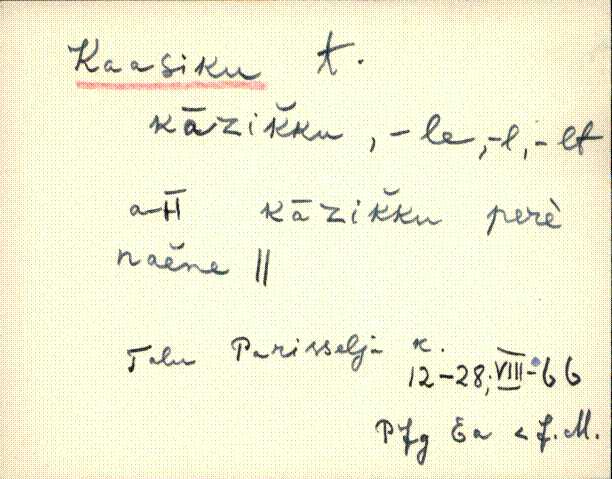 Kaasiku t.
kāzi̮k̆ku, -le, -l, -lt
a-II kāzik̆ku perè
naĕne ||
Talu Parisselja k.
12-28; VIII-66
Pfg Ea < J.M.